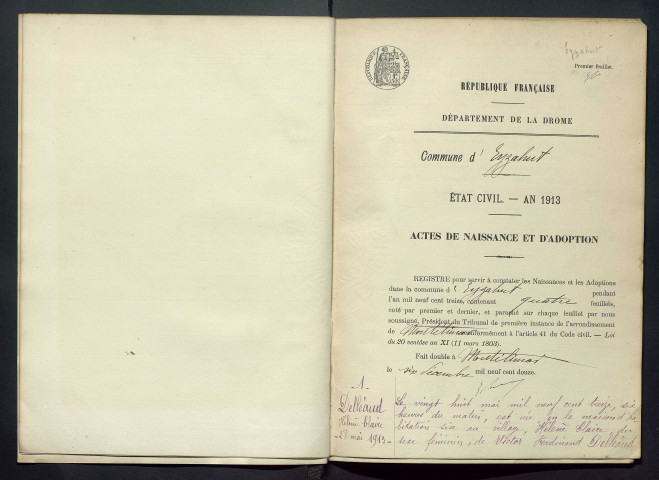 Eyzahut
Premier feuillet.
RÉPUBLIQUE FRANÇAISE
DÉPARTEMENT DE LA DROME
Commune d' Eyzahut
ÉTAT CIVIL. — AN 1913
ACTES DE NAISSANCE ET D'ADOPTION
REGISTRE pour servir à constater les Naissances et les Adoptions
dans la commune d' Eyzahut pendant
l'an mil neuf cent treize, contenant quatre feuillets,
coté par premier et dernier, et paraphé sur chaque feuillet par nous
soussigné, Président du Tribunal de première instance de l'arrondissement
de Montélimar conformément à l'article 41 du Code civil. — Loi
du 20 ventôse an XI (11 mars 1803).
Fait double à Montélimar
le six Décembre mil neuf cent douze.
1
Delléaud
Hélène Claire
28 mai 1913
Le vingt huit mai mil neuf cent treize, six
heures du matin, est née en la maison d'ha
bitation sise au village, Hélène Claire, du
sexe féminin, de Victor Ferdinand Delléaud